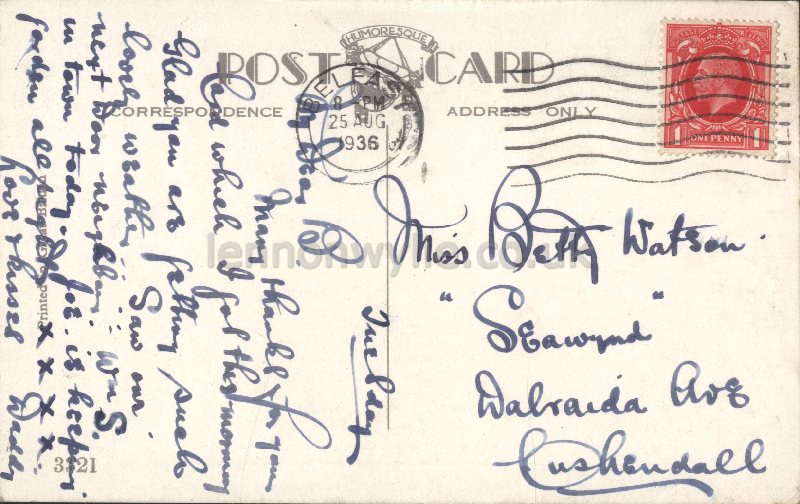 HUMORESQUE
POST CARD
CORRESPONDENCE
ADDRESS ONLY
BELFAST
8 PM
25 AUG
1936
ONE PENNY
1 1
Tuesday
My Dear B
Many thanks for your
Card which I got this morning
Glad you are getting such
lovely weather. Saw our
next door neighbour Wm S.
in town today. Joe is keeping
garden all
Love & kisses Daddy
x x x x
Miss Beth Watson.
" Seawynd "
Dalraida Ave
Cushendall
Printed in
3321
lennonwylie.co.uk